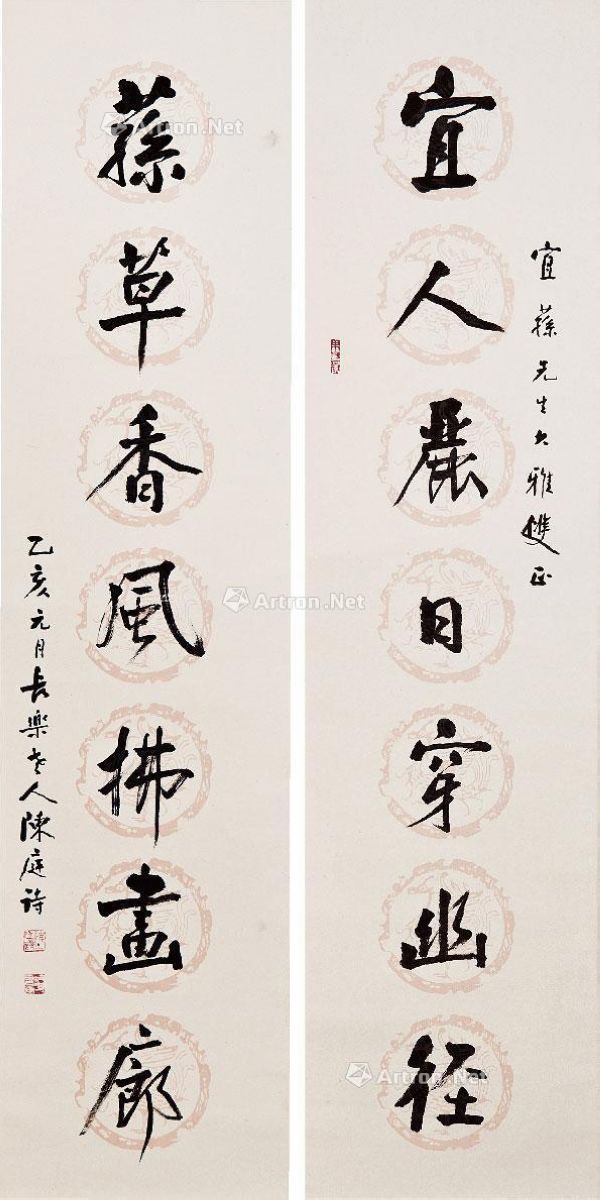 宜蓀先生大雅雙正
宜人麗日穿幽徑
蓀草香風拂畫廊
乙亥元月長樂老人陳庭詩
Artron.Net
Artron.Net
Artron.Net
Artron.Net
Artron.Net